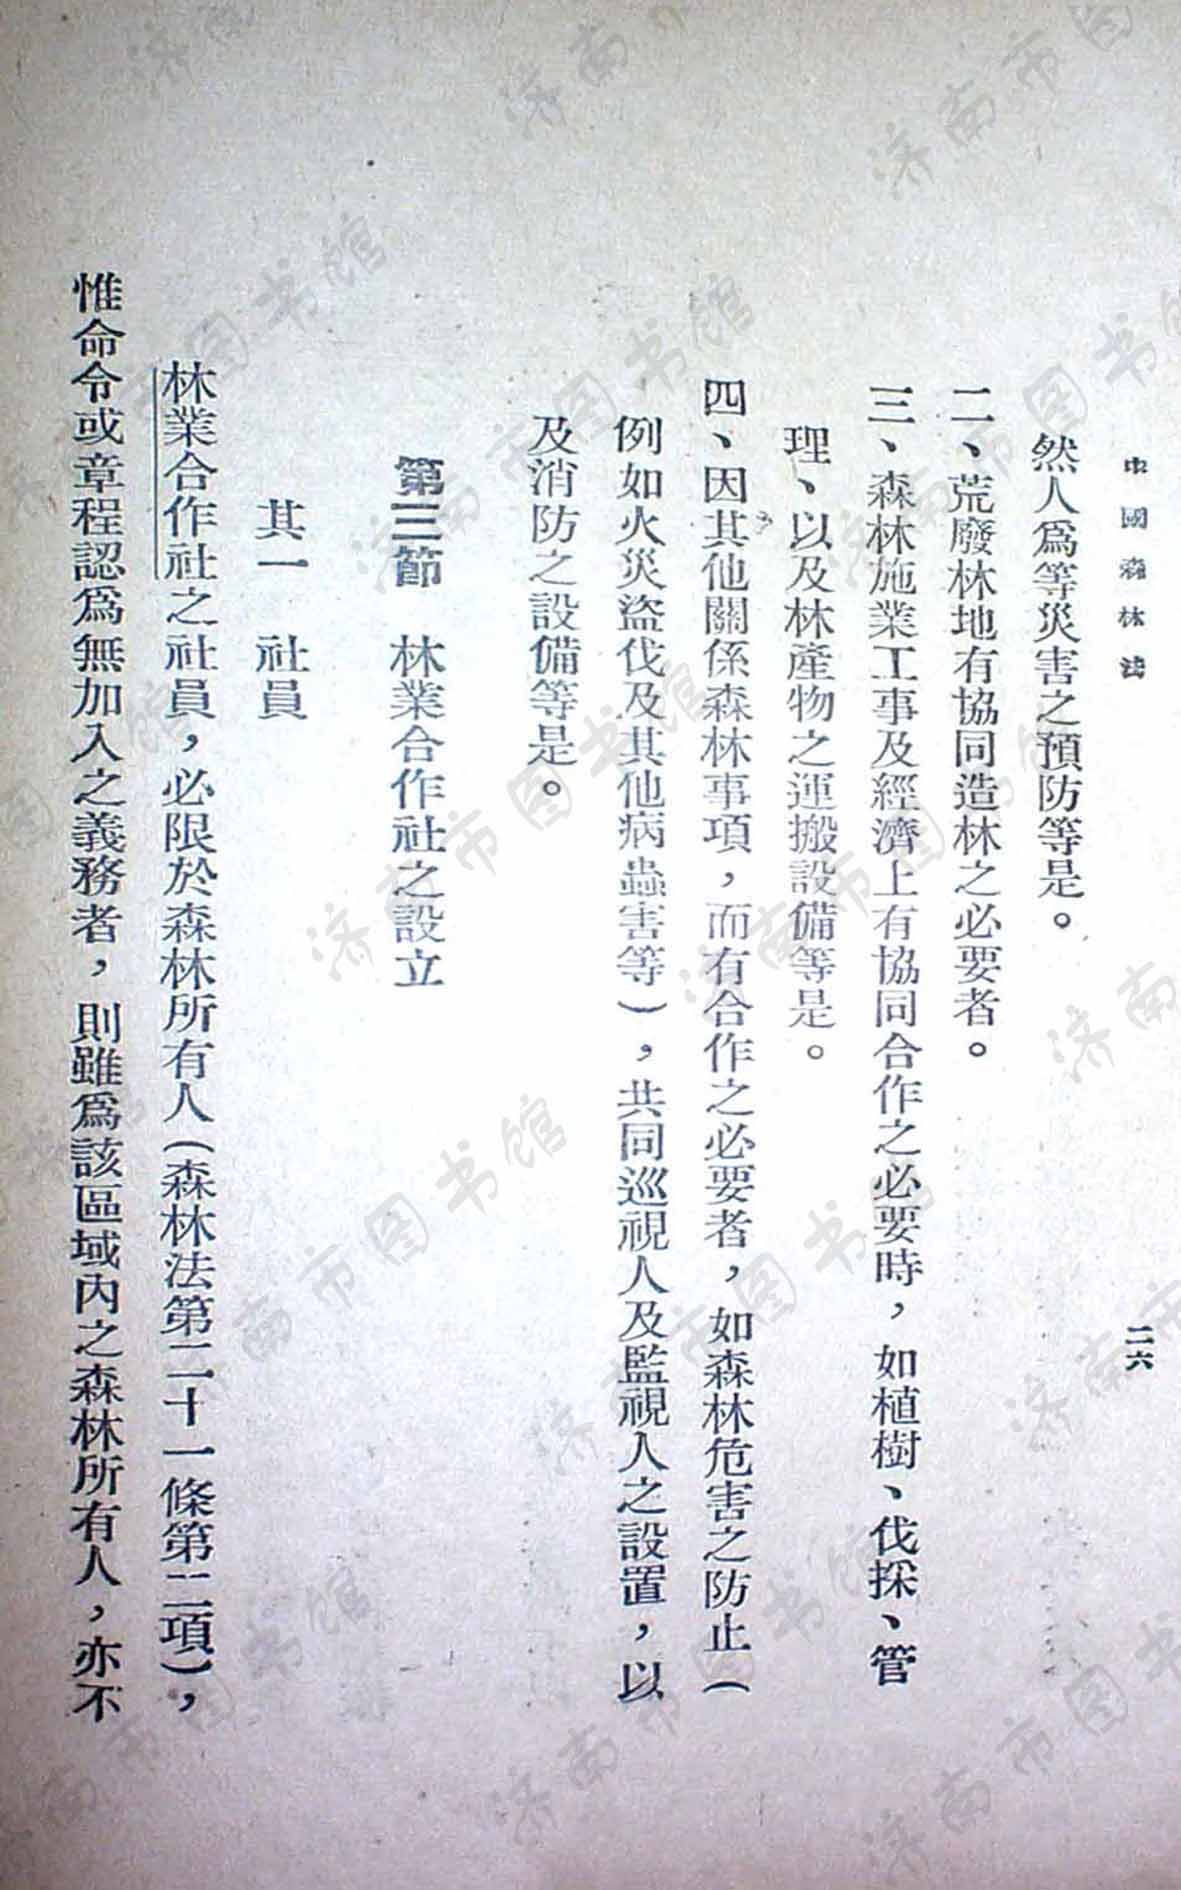 中國森林法　二六
然人爲等災害之預防等是。
二、荒廢林地有協同造林之必要者。
三、森林施業工事及經濟上有協同合作之必要時，如植樹、伐採、管
理、以及林產物之運搬設備等是。
四、因其他關係森林事項，而有合作之必要者，如森林危害之防止（
例如火災盜伐及其他病蟲害等），共同巡視人及監視人之設置，以
及消防之設備等是。
第三節　林業合作社之設立
其一　社員
林業合作社之社員，必限於森林所有人（森林法第二十一條第二項），
惟命令或章程認爲無加入之義務者，則雖爲該區域內之森林所有人，亦不
济南市图书馆